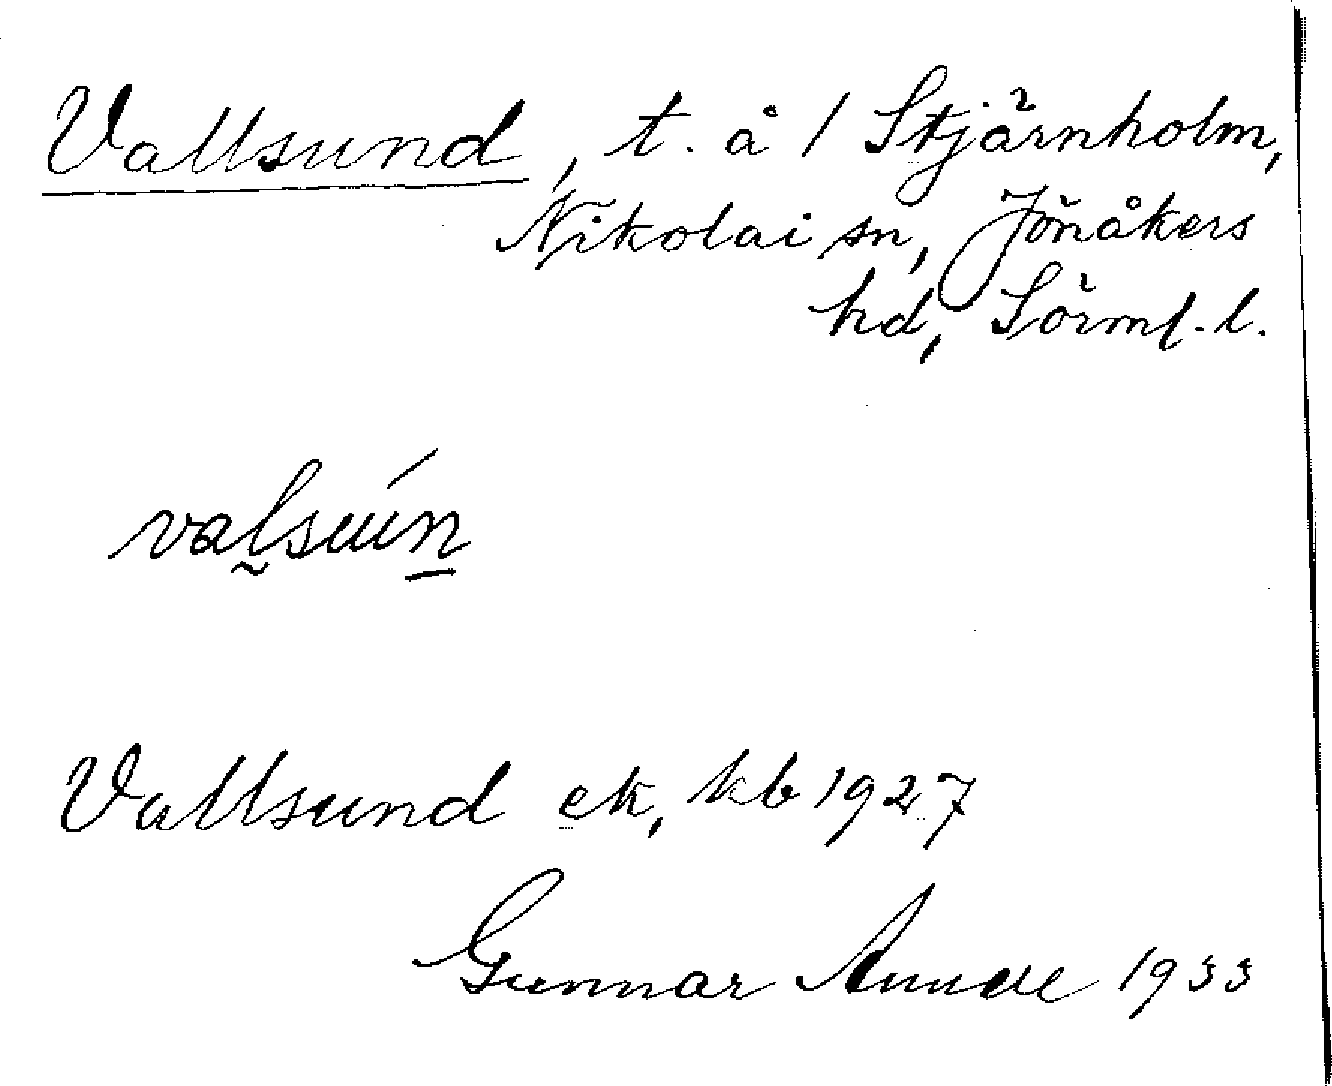 Vallsund, t. å / Stjärnholm,
Nikolai sn, Jönåkers
hd, Sörml. l.
valsun
Vallsund ek, kb 1927
Gunnar 1933